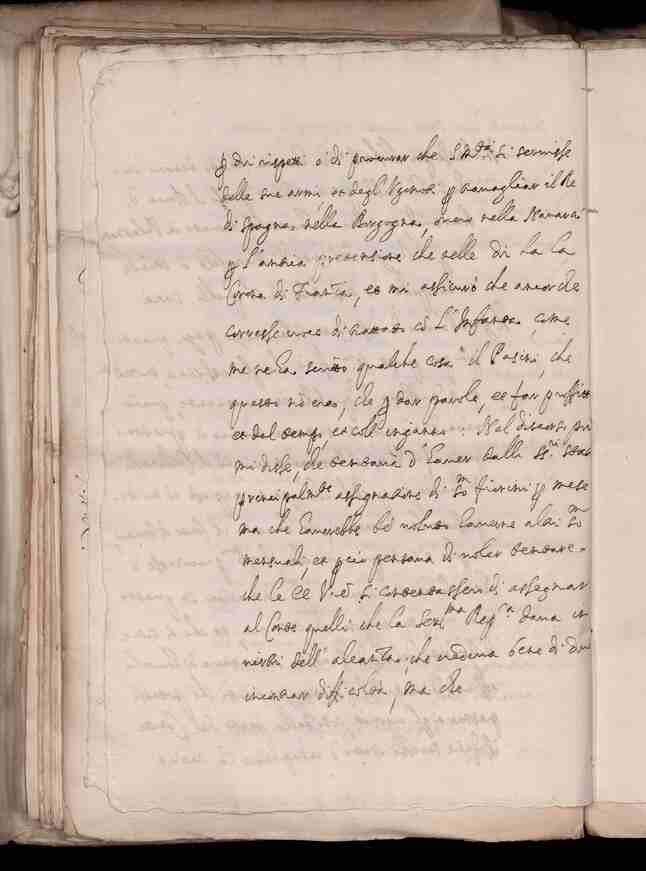 p dui rispetti o di procurar che S M.tà si servisse
delle sue armi, et degl' Ugonoti p travagliar il Re
di spagna nella Borgogna, overo nella Navara
p l'antica pretensione che nelle di ha la
Corona di Franza, et mi assicurò che ancorche
corresse voce di trattato cō l'Infanta, come
me ne ha scritto qualche cosa il Pasini, che
questo nō era, che p dar parole, et far profitto
et dal tempo, et coll' inganno. Nel discorso poi
mi disse, che tentava d' haver dalli SS.ri Stati
principalm.te assignatione di m fiorini p mese
ma che haverebbe bē voluto haverne altri m
mensuali, et p ciò pensava di voler tentare
che le EE VV. si contentassero di assegnar
al Conte quelli che la Ser.ma Rep.ca dava in
virtù dell' aleanza, che vedeva bene di dui
incontrar difficoltà, ma che